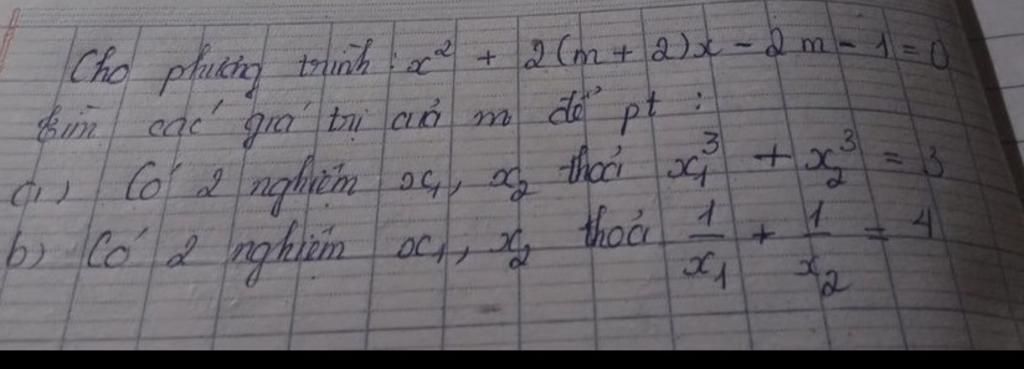 Cho phương trình : x² + 2(m + 2)x - 2m - 1 = 0
tìm các giá trị của m để pt :
a) Có 2 nghiệm x₁, x₂ thoả x₁³ + x₂³ = 3
b) Có 2 nghiệm x₁, x₂ thoả 1/x₁ + 1/x₂ = 4